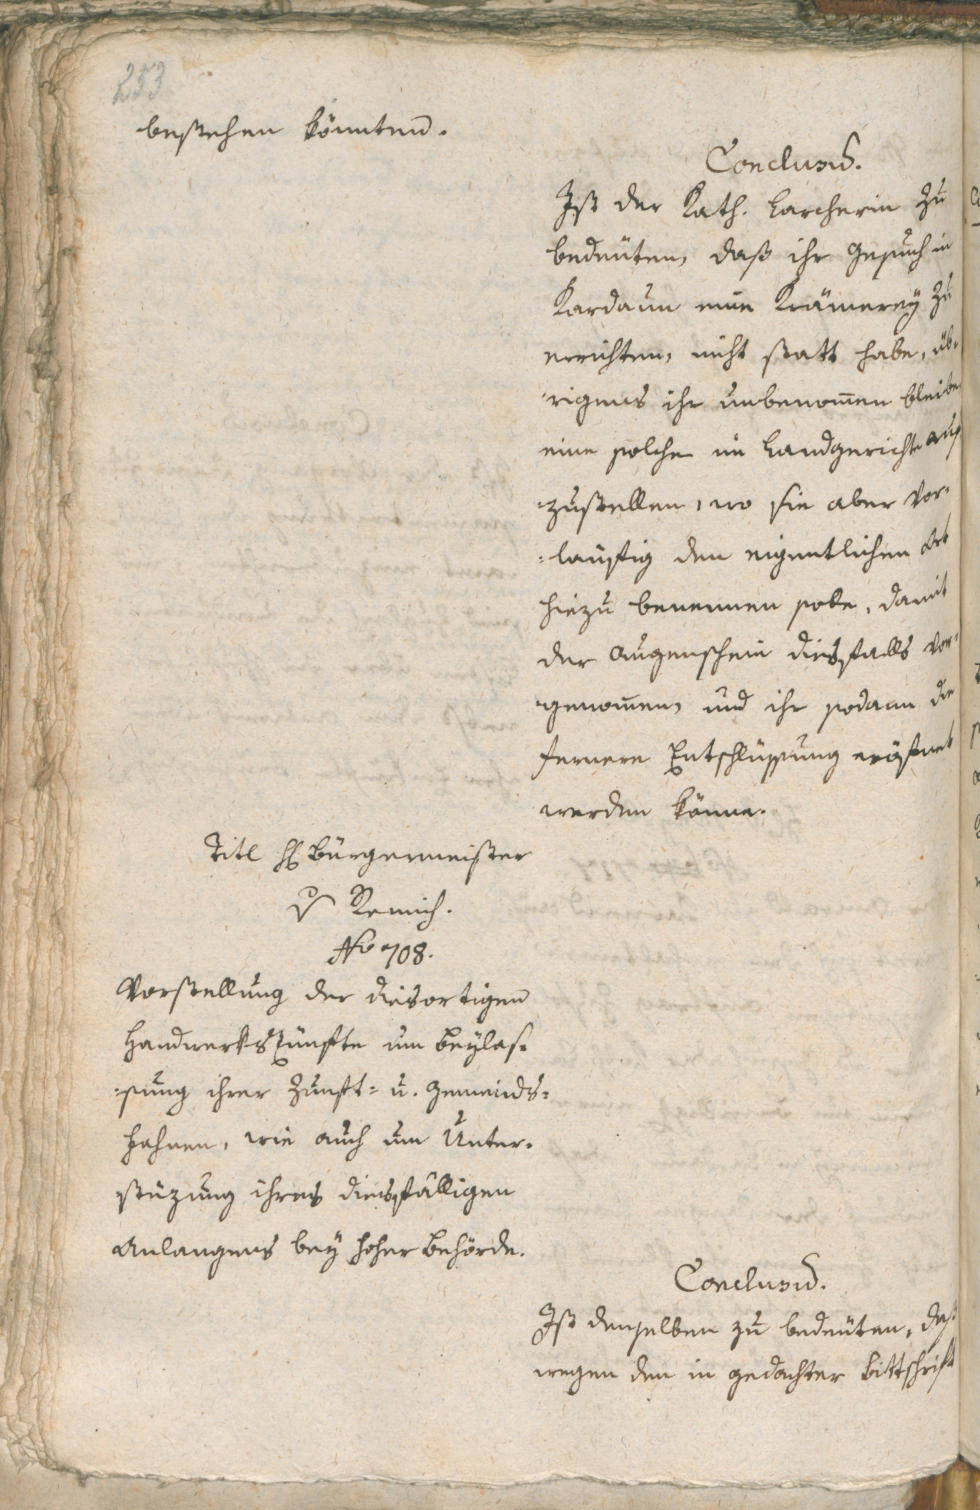 253
bestehen könnten.
Conclusũ.
Ist der Kath. Larcherin zu
bedeuten, daß ihr Gesuch in
Kardaun eine Krämerey zu
errichten, nicht statt habe, üb-
rigens ihr unbenom̄en bleibe
eine solche im Landgerichte auf
zustellen, wo sie aber vor-
läufig den eigentlichen Ort
hiezu benennen solle, damit
der Augenschein diesfalls vor-
genom̄en, und ihr sodann die
fernere Entschlüssung eröfnet
werden könne.
Titl H Bürgermeister
v Remich.
No 708.
Vorstellung der diesortigen
Handwerkszünfte um Beylas-
sung ihrer Zunft- u. Gemeinds-
Fahnen, wie auch um Unter-
stüzung ihres diesfälligen
Anlangens bey hoher Behörde.
Conclusũ.
Ist denselben zu bedeuten, daß
wegen den in gedachter Bittschrift